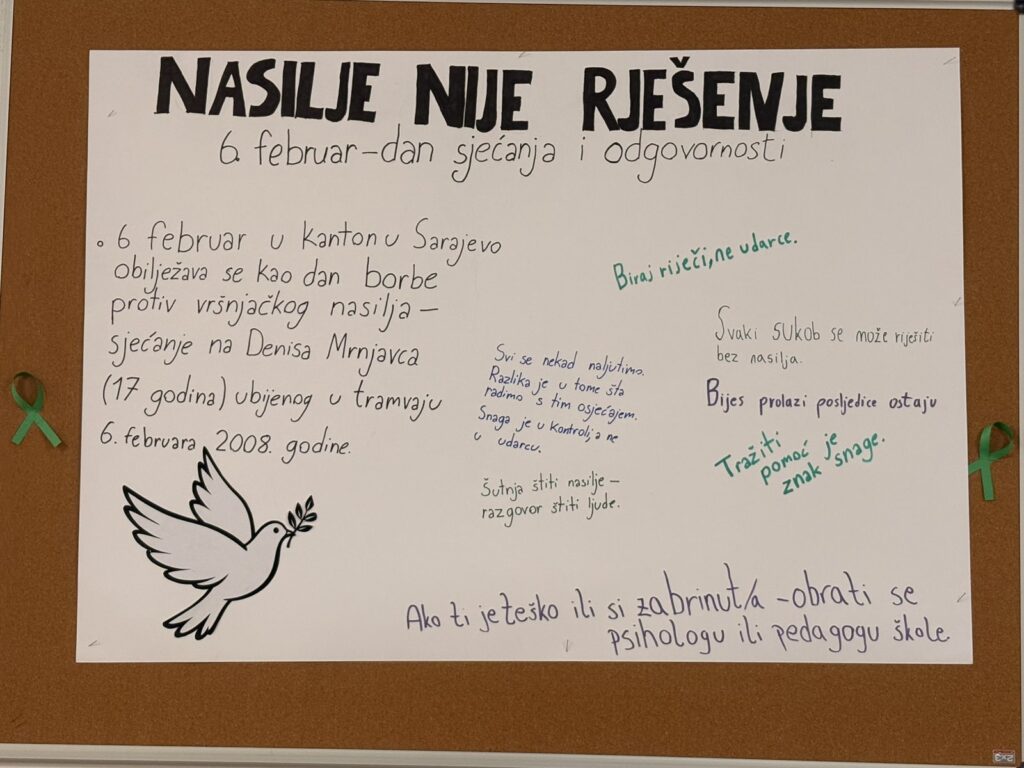 NASILJE NIJE RJEŠENJE
6. februar-dan sjećanja i odgovornosti
6 februar u Kantonu Sarajevo
obilježava se kao dan borbe
protiv vršnjačkog nasilja –
sjećanje na Denisa Mrnjavca
(17 godina) ubijenog u tramvaju
6. februara 2008. godine.
Biraj riječi, ne udarce.
Svi se nekad naljutimo.
Razlika je u tome šta
radimo s tim osjećajem.
Snaga je u kontroli, a ne
u udarcu.
Šutnja štiti nasilje –
razgovor štiti ljude.
Svaki sukob se može riješiti
bez nasilja.
Bijes prolazi posljedice ostaju
Tražiti
pomoć je
znak snage.
Ako ti je teško ili si zabrinut/a -obrati se
psihologu ili pedagogu škole
2x3